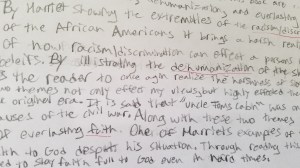 dehumanization, and everlastin
By Harriet showing the extremities of the racism/discri
of the African Americans it brings a harsh reali
of how racism/discrimination can effect a persons
beleifs. By illustrating the dehumanization of the
the reader to once again realize the harshness of
two themes not only effect my views, but highly effected th
original era. It is said that "uncle Toms cabin" was on
auses of the civil war. Along with these two themes
of everlasting faith. One of Harriets examples of
th to God despite his situation. Through reading this
ed to stay faith full to God even in hard times